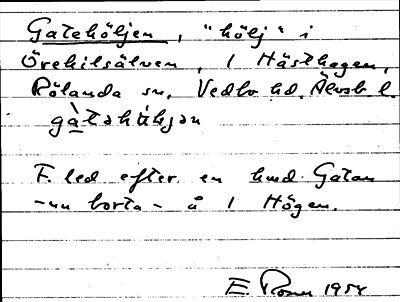 Gatehöljen, "hölj" i
Örekilsälven, 1 Hästhagen,
Rölanda sn, Vedbo hd. Älvsb. l.
F. led efter en hmd. Gatan
-nu borta- å 1 Högen.
E. 1954